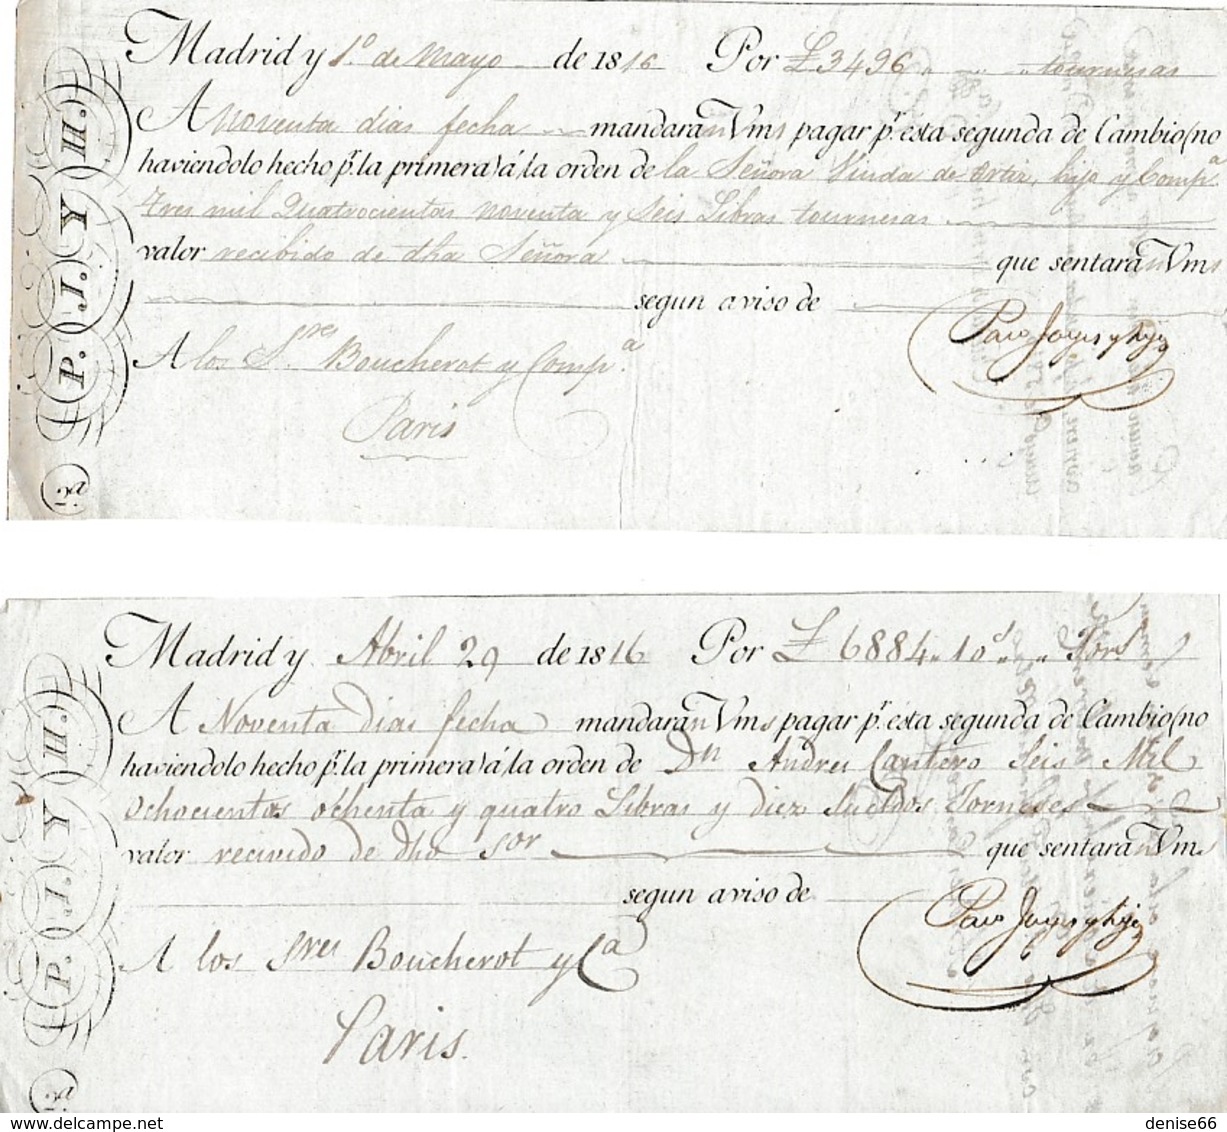 Madrid y 1º de Mayo de 1816 Por £ 3496 " " " tournesas
A Noventa dias fecha mandaran Vms pagar pr. esta segunda de Cambio (no
haviendolo hecho pr. la primera) á la orden de la Señora Viuda de Ortiz, hijo y Compª
Tres mil Quatrocientas noventa y Seis Libras tournesas
valor recibido de dha Señora que sentaran Vms
segun aviso de
Paco Joyes y hijo
A los Sres Boucherot y Compª
Paris
P. J. Y H.
2ª
Madrid y Abril 29 de 1816 Por £ 6884 " 10 s " " Tors
A Noventa dias fecha mandaran Vms pagar pr. esta segunda de Cambio (no
haviendolo hecho pr. la primera) á la orden de Dn Andres Cantero Seis Mil
Ochocientas ochenta y quatro Libras y diez Sueldos Tornese
valor recivido de dho Sor que sentaran Vms
segun aviso de
Paco Joyes y hijo
A los Sres Boucherot y Cª
Paris.
P. J. Y H.
2ª
denise66